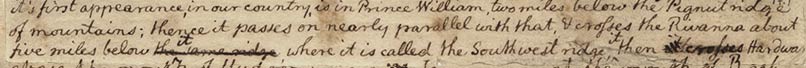 it's first appearance, in our country, is in Prince William, two miles below the Pignut ridge
of mountains; thence it passes on nearly parallel with that, & crosses the Rivanna about
five miles below it the same ridge where it is called the Southwest ridge it then crosses Hardwa